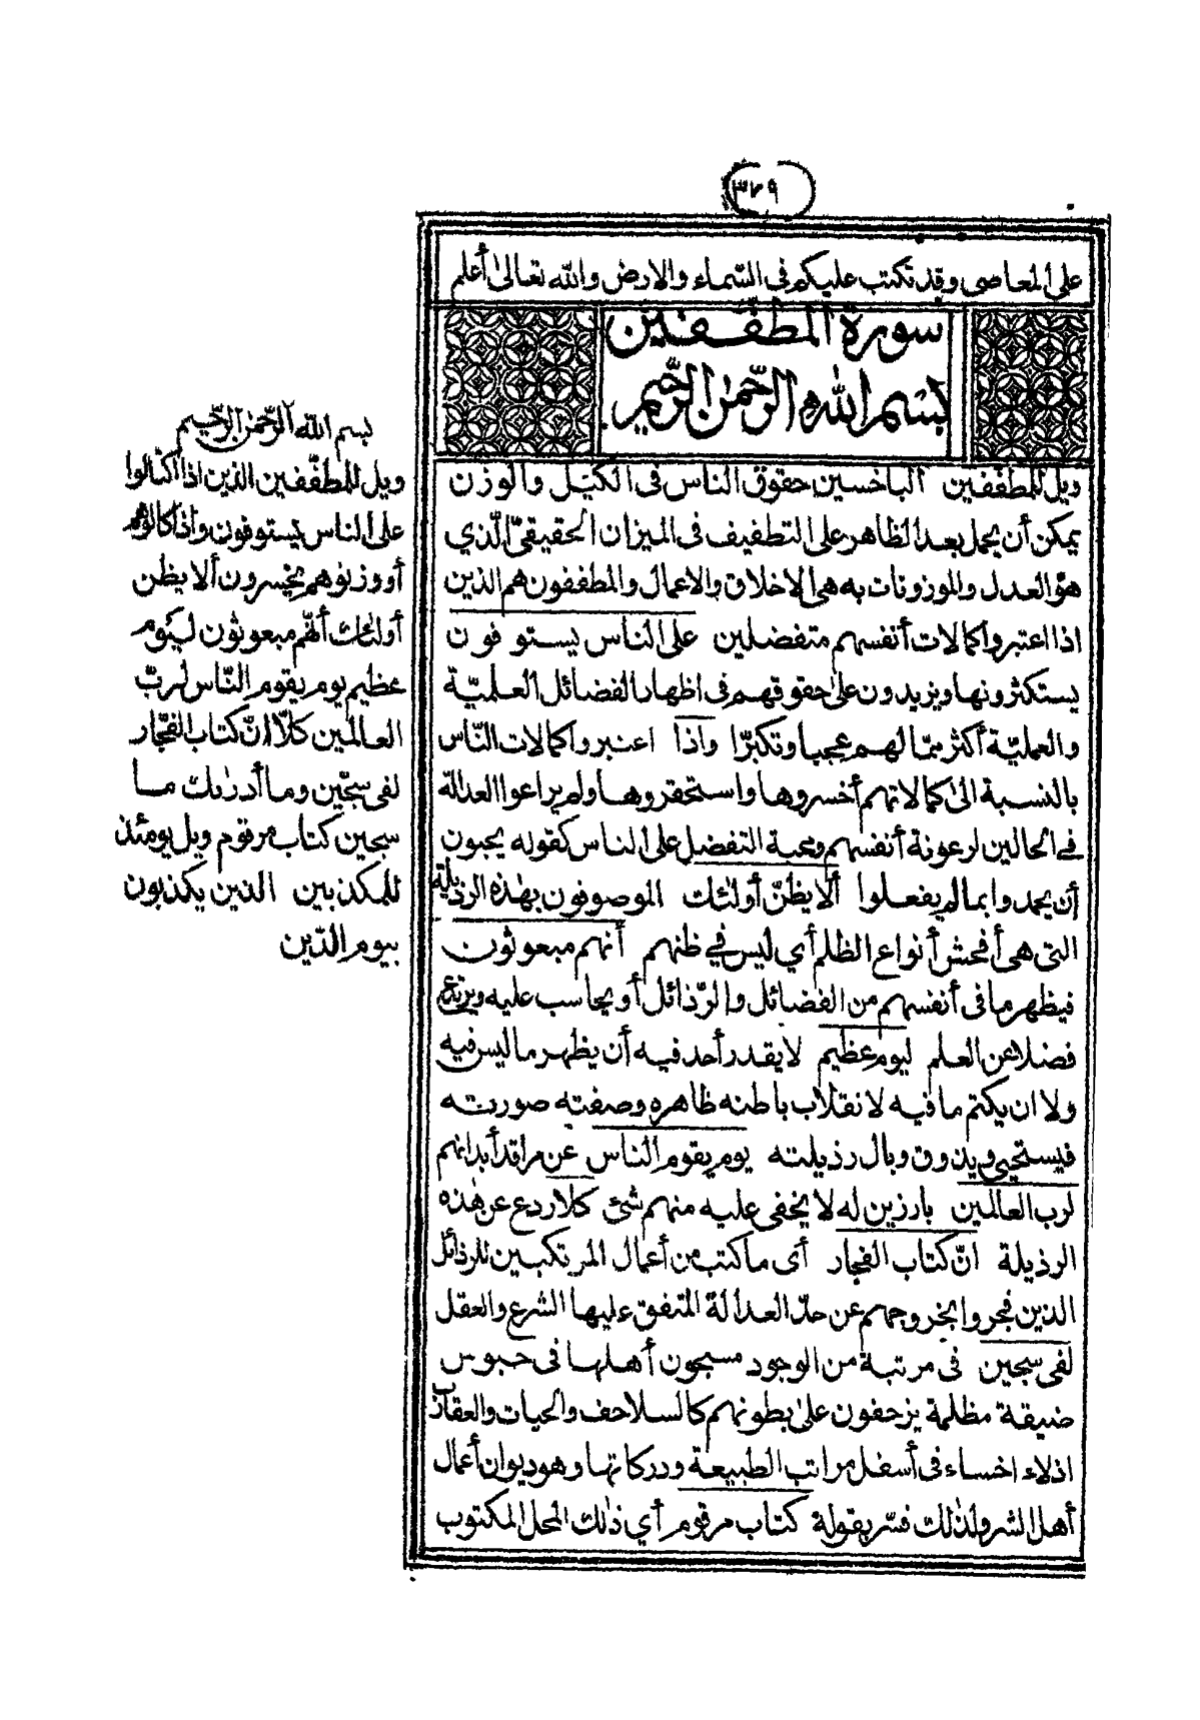 ٣٧٩
على المعاصى وقد تكتب عليكم فى السّماء والارض والله تعالىٰ أعلم
سورة المطفّفين
بسم الله الرّحمٰن الرّحيم
ويل للمطفّفين الباخسين حقوق الناس فى الكيل والوزن
يمكن أن يحمل بعد الظاهر على التطفيف فى الميزان الحقيقىّ الّذي
هو العدل والموزونات به هى الاخلاق والاعمال والمطففون هم الذين
اذا اعتبروا كمالات أنفسهم متفضلين على الناس يستوفون
يستكثرونها ويزيدون على حقوقهم فى اظهار الفضائل العلميّة
والعمليّة أكثر ممّا لهم عجبا وتكبرّا واذا اعتبروا كمالات النّاس
بالنسبة الىٰ كمالاتهم أخسروها واستحقروها ولم يراعوا العدالة
في الحالين لرعونة أنفسهم ومحبة التفضل على الناس كقوله يحبون
أن يحمدوا بما لم يفعلوا ألا يظنّ أولئك الموصوفون بهٰذه الرذيلة
التى هى أفحش أنواع الظلم أي ليس في ظنهم أنهم مبعوثون
فيظهر ما فى أنفسهم من الفضائل والرّذائل أو يحاسب عليه ويرتدع
فضلا عن العلم ليوم عظيم لا يقدر أحد فيه أن يظهر ما ليس فيه
ولا ان يكتم ما فيه لانقلاب باطنه ظاهره وصفته صورته
فيستحيي ويذوق وبال رذيلته يوم يقوم الناس عن مراقد أبدانهم
لرب العالمين بارزين له لا يخفى عليه منهم شئ كلا ردع عن هٰذه
الرذيلة انّ كتاب الفجار أى ما كتب من أعمال المرتكبين للرذائل
الذين فجروا بخروجهم عن حدّ العدالة المتفق عليها الشرع والعقل
لفى سجين فى مرتبة من الوجود مسجون أهلها فى حبوس
ضيقة مظلمة يزحفون علىٰ بطونهم كالسلاحف والحيات والعقارب
اذلاء اخساء فى أسفل مراتب الطبيعة ودركاتها وهو ديوان أعمال
أهل الشر ولذٰلك فسّر بقولة كتاب مرقوم أي ذٰلك المحل المكتوب
بسم الله الرّحمٰن الرّحيم
ويل للمطفّفين الذين اذا اكتالوا
على الناس يستوفون واذا كالوهم
أو وزنوهم يخسرون ألا يظن
أولئك أنّهم مبعوثون ليوم
عظيم يوم يقوم النّاس لربّ
العالمين كلّا انّ كتاب الفجّار
لفى سجّين وما أدرٰىك ما
سجين كتاب مرقوم ويل يومئذ
للمكذبين الذين يكذبون
بيوم الدّين